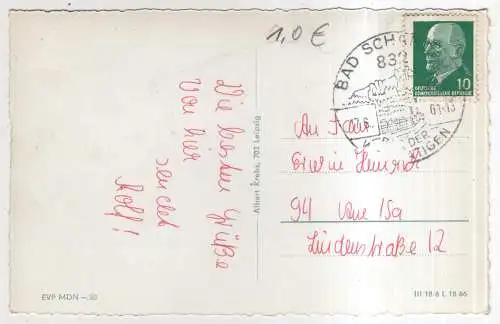 1,0 €
Die besten Grüße
Von hier
sendet
Rolf!
Albert Krebs, 701 Leipzig
BAD SCHAN
832
DER
DEUTSCHE
DEMOKRATISCHE REPUBLIK
10
An Frau
94 Aue /Sa
Lindenstraße 12
EVP MDN –.20
III 18 6 L 18 66